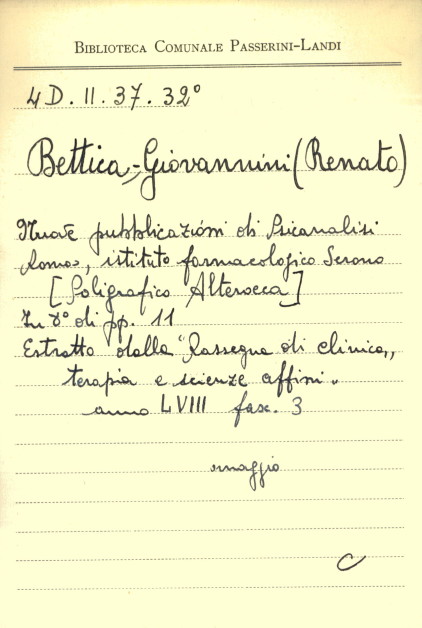 BIBLIOTECA COMUNALE PASSERINI-LANDI
4D.II.37.32°
Bettica-Giovannini (Renato)
Nuove pubblicazioni di Psicanalisi
Roma, istituto farmacologico Serono
[Poligrafico Alterocca]
In 8° di pp. 11
Estratto dalla "Rassegna di clinica,
terapia e scienze affini"
anno LVIII fasc. 3
omaggio
C